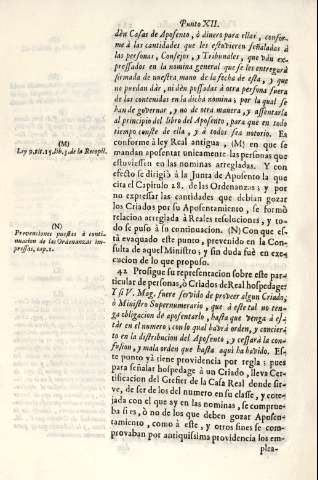 Punto XII.
dèn Casas de Aposento, ò dinero para ellas, confor-
me à las cantidades que les estuvieren señaladas à
las personas, Consejos, y Tribunales, que vàn ex-
pressados en la nomina general que se les entregarà
firmada de nuestra mano de la fecha de esta, y que
no puedan dàr, ni dèn possadas à otra persona fuera
de las contenidas en la dicha nomina; por la qual se
han de governar, y no de otra manera, y assentarla
al principio del libro del Aposento, para que en todo
tiempo conste de ella, y à todos sea notorio. Es
conforme à ley Real antigua, (M) en que se
mandan aposentar unicamente las personas que
estuviessen en las nominas arregladas. Y con
efecto se dirigiò à la Junta de Aposento la que
cita el Capitulo 28. de las Ordenanzas; y por
no expressar las cantidades que debian gozar
los Criados por su Aposentamiento, se formò
relacion arreglada à Reales resoluciones, y to-
do se puso à lo continuacion. (N) Con que es-
tà evaquado este punto, prevenido en la Con-
sulta de aquel Ministro; y sin duda fuè en exe-
cucion de lo que propuso.
(M)
Ley 9. tit. 15. lib. 3. de la Recopil.
(N)
Prevenciones puestas à conti-
nuacion de las Ordenanzas im-
pressas, cap. 1.
42 Prosigue su representacion sobre este par-
ticular de personas, ò Criados de Real hospedage:
Y si V. Mag. fuere servido de proveer algun Criado,
ò Ministro Supernumerario, que à este tal no ten-
ga obligacion de aposentarlo, hasta que venga à es-
tàr en el numero, con lo qual havrà orden, y concier-
to en la distribucion del Aposento, y cessarà la con-
fusion, y mala orden que hasta aqui ha havido. Es-
te punto yà tiene providencia por regla; pues
para señalar hospedage à un Criado, lleva Cer-
tificacion del Grefier de la Casa Real donde sir-
ve, de ser de los del numero en su classe, y cote-
jada con el que ay en las nominas, se comprue-
ba si es, ò no de los que deben gozar Aposen-
tamiento, como à este, y otros fines se com-
provaban por antiquissima providencia los em-
plea-